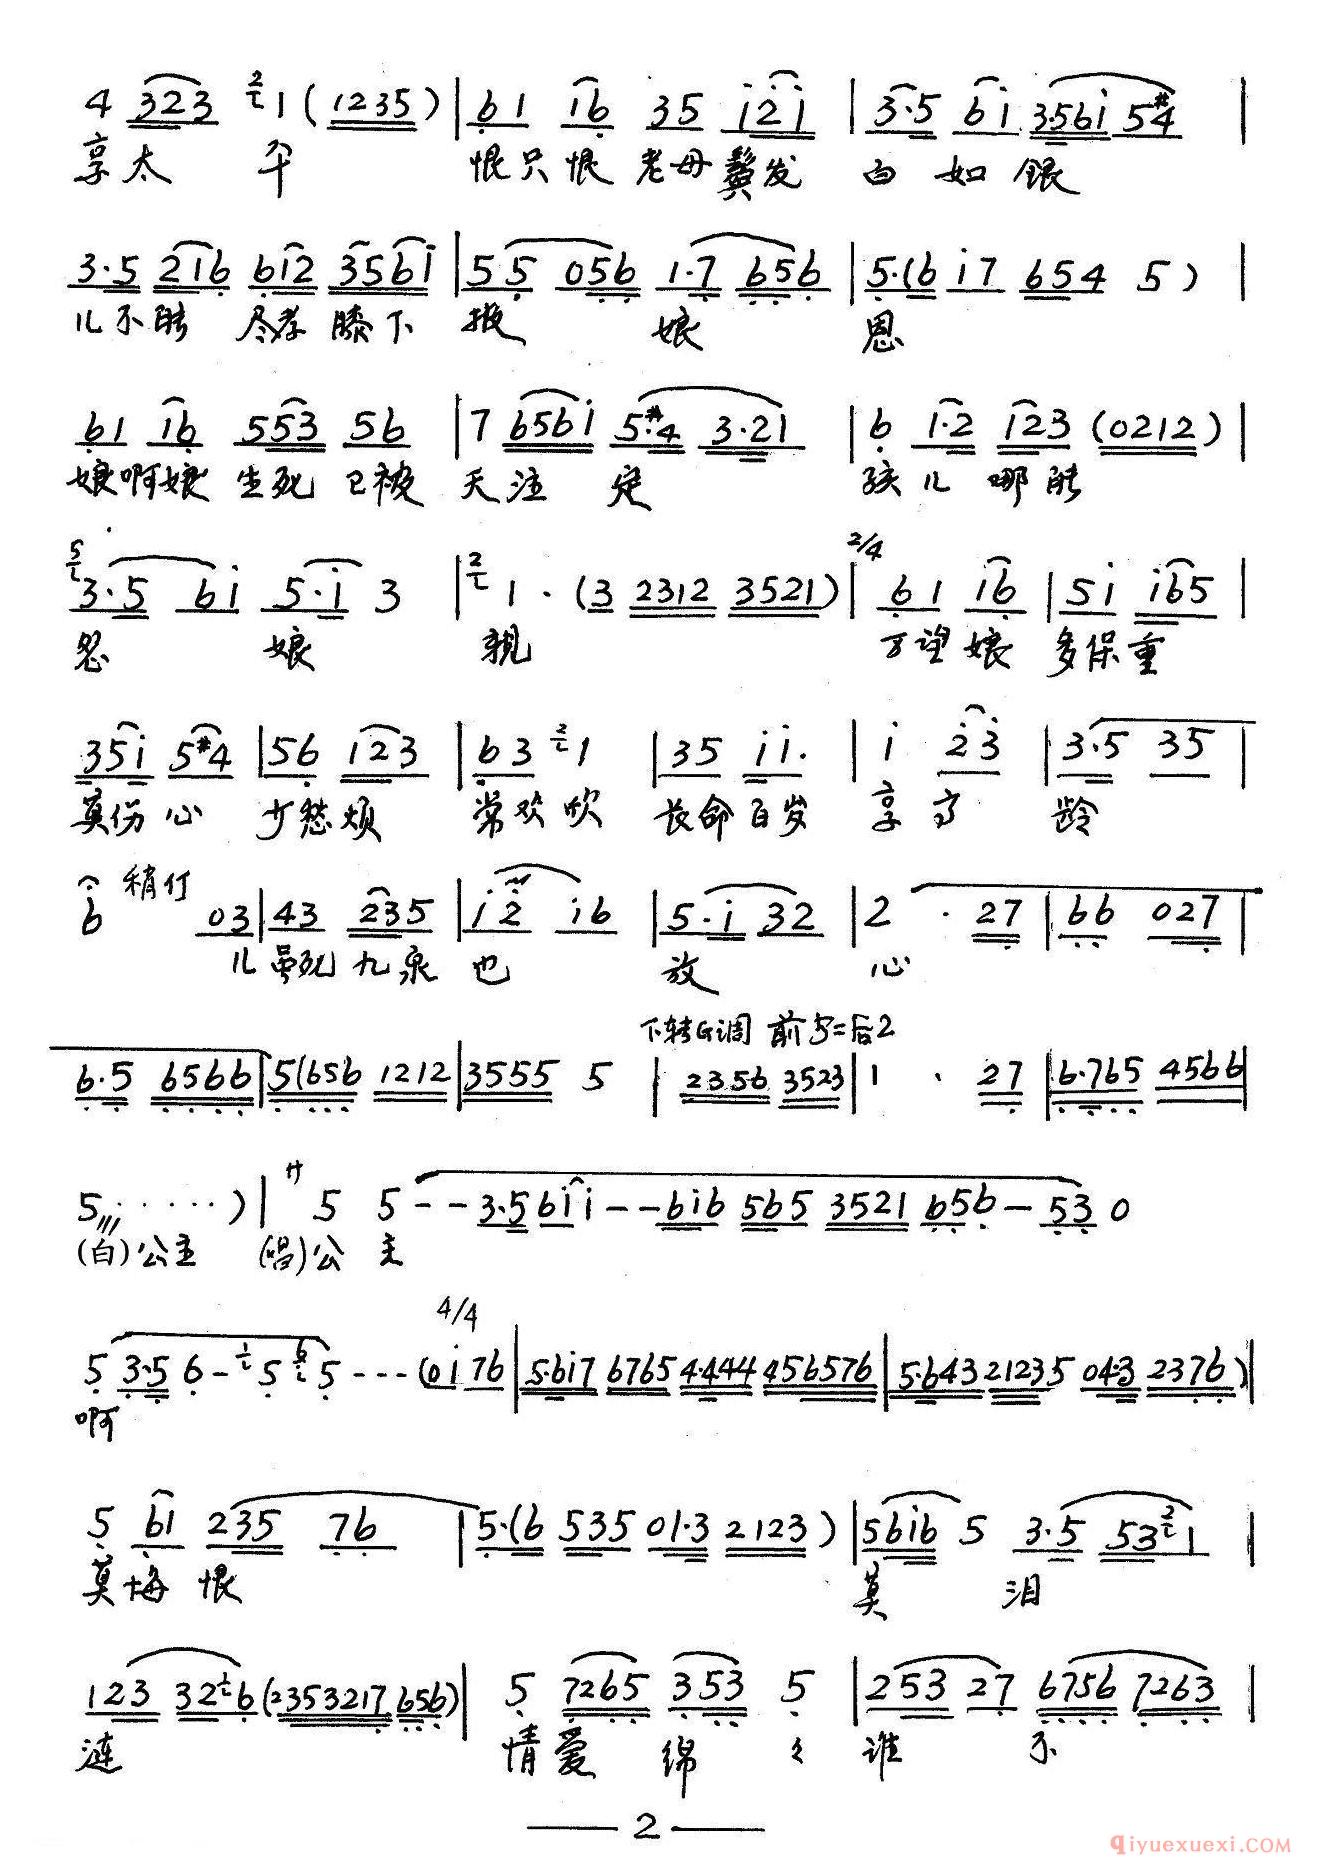 4 323 2 1 (1235) | 61 16 35 i2i | 3·5 6i 356i 5#4 |
享太 平 恨只恨 老母鬓发 白 如 银
3·5 216 612 356i | 55 056 1·7 656 | 5·(6 i7 654 5) |
儿不能 尽孝 膝下 报 娘 恩
61 16 553 56 | 7 656i 5·#4 3·21 | 6 1·2 123 (0212) |
娘啊娘 生死 已被 天注 定 孩儿 哪能
5 3·5 6i 5·i 3 | 2 1 · (3 2312 3521) | 2/4 61 16 | 5i i65 |
忽 娘 亲 万望娘 多保重
35i 5#4 | 56 123 | 63 2 1 | 35 ii· | i 23 | 3·5 35 |
莫伤心 少愁烦 常欢欣 长命百岁 享高 龄
6 稍仃 03 | 43 235 | i2 i6 | 5·i 32 | 2 · 27 | 66 027 |
儿虽死 九泉 也 放 心
下转G调 前5=后2
6·5 6566 | 5(656 1212 | 3555 5 | 2356 3523 | 1 · 27 | 6·765 4566 |
5 · ····· ) | サ 5 5 - - 3·5 6i i - - 6i6 565 3521 656 - 53 0
(白)公主 (唱)公 主
4/4
5 3·5 6 - 1 5 6 5 - - - (0i 76 | 5·6i7 6765 4·444 456576 | 5·643 21235 04·3 2376) |
啊
5 61 235 76 | 5·(6 535 01·3 2123) | 56i6 5 3·5 53 2 1 |
莫悔 恨 莫 泪
123 32 1 6 (2353217 656) | 5 7265 353 5 | 253 27 6756 7263 |
涟 情爱 绵 々 谁 不
— 2 —
qiyuexuexi.COM